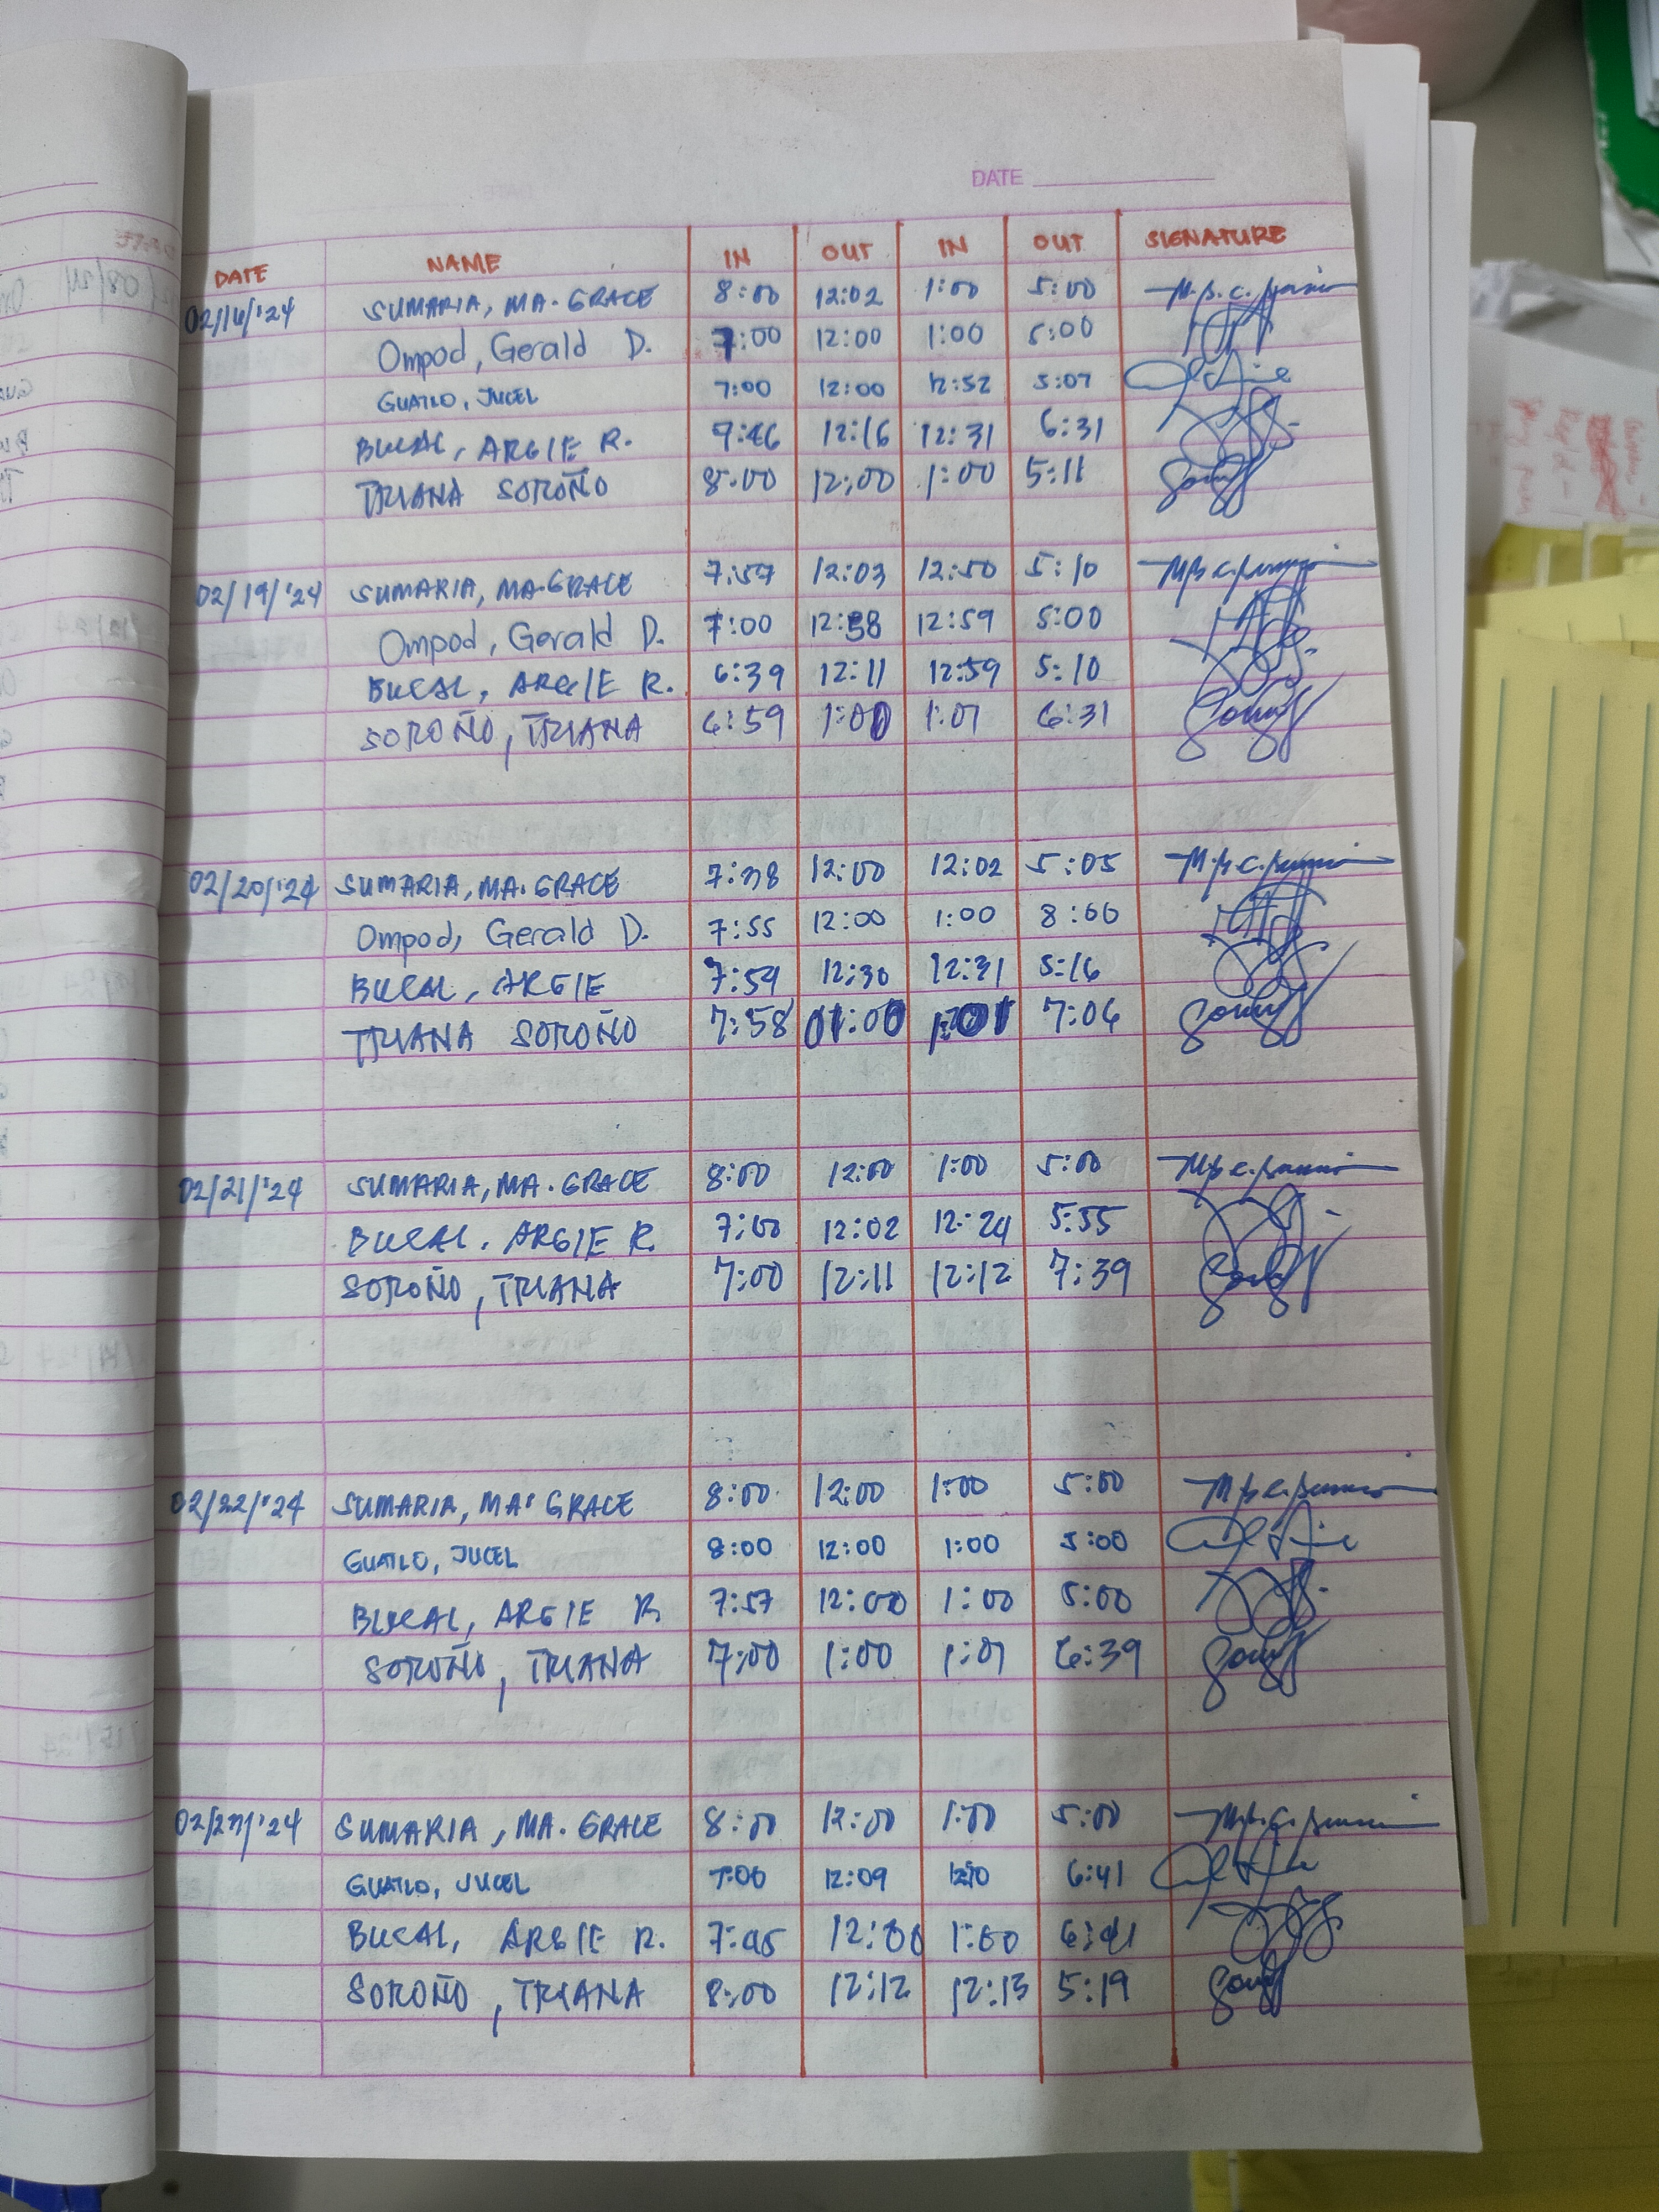 DATE
DATE NAME IN OUT IN OUT SIGNATURE
02/16/'24 SUMARIA, MA. GRACE 8:00 12:02 1:00 5:00
Ompod, Gerald D. 7:00 12:00 1:00 5:00
GUATLO, JUCEL 7:00 12:00 12:52 5:07
BUCAL, ARGIE R. 7:46 12:16 12:31 6:31
TRIANA SOROÑO 8:00 12:00 1:00 5:11
02/19/'24 SUMARIA, MA. GRACE 7:57 12:03 12:50 5:10
Ompod, Gerald D. 7:00 12:58 12:59 5:00
BUCAL, ARGIE R. 6:39 12:11 12:59 5:10
SOROÑO, TRIANA 6:59 1:00 1:01 6:31
02/20/'24 SUMARIA, MA. GRACE 7:38 12:00 12:02 5:05
Ompod, Gerald D. 7:55 12:00 1:00 8:00
BUCAL, ARGIE 7:59 12:30 12:31 5:16
TRIANA SOROÑO 7:58 01:00 1:01 7:06
02/21/'24 SUMARIA, MA. GRACE 8:00 12:00 1:00 5:00
BUCAL, ARGIE R. 7:00 12:02 12:24 5:55
SOROÑO, TRIANA 7:00 12:11 12:12 7:39
02/22/'24 SUMARIA, MA. GRACE 8:00 12:00 1:00 5:00
GUATLO, JUCEL 8:00 12:00 1:00 5:00
BUCAL, ARGIE R. 7:57 12:00 1:00 5:00
SOROÑO, TRIANA 7:00 1:00 1:01 6:39
02/23/'24 SUMARIA, MA. GRACE 8:00 12:00 1:00 5:00
GUATLO, JUCEL 7:00 12:09 12:10 6:41
BUCAL, ARGIE R. 7:45 12:00 1:00 6:41
SOROÑO, TRIANA 8:00 12:12 12:13 5:19